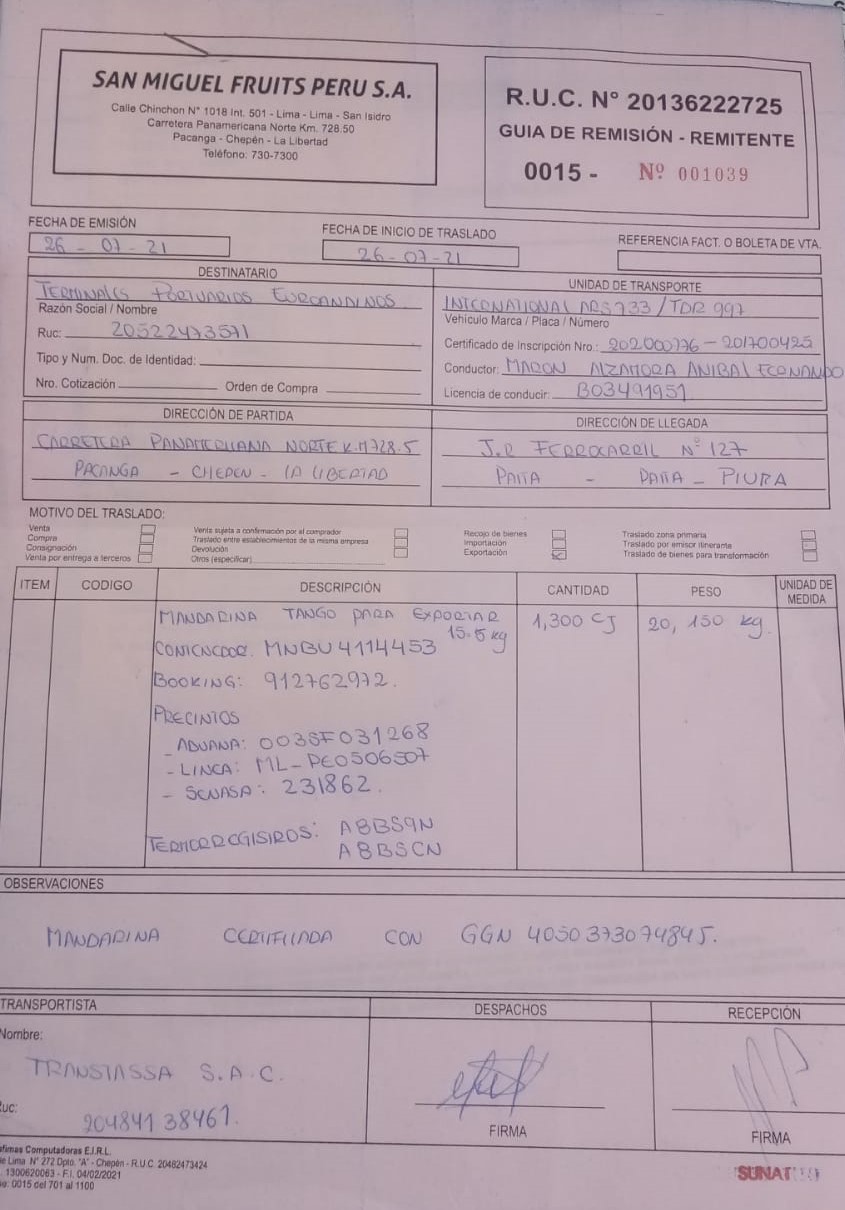 SAN MIGUEL FRUITS PERU S.A.
Calle Chinchon N° 1018 Int. 501 - Lima - Lima - San Isidro
Carretera Panamericana Norte Km. 728.50
Pacanga - Chepén - La Libertad
Teléfono: 730-7300
R.U.C. N° 20136222725
GUIA DE REMISIÓN - REMITENTE
0015 - Nº 001039
FECHA DE EMISIÓN
26 - 07 - 21
FECHA DE INICIO DE TRASLADO
26 - 07 - 21
REFERENCIA FACT. O BOLETA DE VTA.
DESTINATARIO
TERMINALES PORTUARIOS EUROANDINOS
Razón Social / Nombre
Ruc: 20522473571
Tipo y Num. Doc. de Identidad:
Nro. Cotización Orden de Compra
UNIDAD DE TRANSPORTE
INTERNATIONAL ARS733 / TDR 997
Vehículo Marca / Placa / Número
Certificado de Inscripción Nro.: 202000776 - 201700425
Conductor: ALZAMORA ANIBAL
Licencia de conducir: B03491951
DIRECCIÓN DE PARTIDA
CARRETERA PANAMERICANA NORTE K.M 728.5
PACANGA - CHEPEN - LA LIBERTAD
DIRECCIÓN DE LLEGADA
J.R FERROCARRIL N° 127
PAITA - PAITA - PIURA
MOTIVO DEL TRASLADO:
Venta
Compra
Consignación
Venta por entrega a terceros
Venta sujeta a confirmación por el comprador
Traslado entre establecimientos de la misma empresa
Devolución
Otros (especificar)
Recojo de bienes
Importación
Exportación
Traslado zona primaria
Traslado por emisor itinerante
Traslado de bienes para transformación
ITEM CODIGO DESCRIPCIÓN CANTIDAD PESO UNIDAD DE MEDIDA
MANDARINA TANGO PARA EXPORTAR 1,300 CJ 20,150 kg.
15.5 kg
CONTENEDOR: MNBU 4114453
BOOKING: 912762972.
PRECINTOS
- ADUANA: 003SF031268
- LINEA: ML-PE0506507
- SENASA: 231862.
TERMOREGISTROS: A8BS9N
A8BSCN
OBSERVACIONES
MANDARINA CERTIFICADA CON GGN 4050373074845.
TRANSPORTISTA
DESPACHOS
RECEPCIÓN
Nombre:
TRANSTASSA S.A.C.
Ruc:
20484138461.
FIRMA
FIRMA
Computadoras E.I.R.L.
Lima N° 272 Dpto. "A" - Chepén - R.U.C. 20482473424
1300620063 - F.I. 04/02/2021
0015 del 701 al 1100
SUNAT